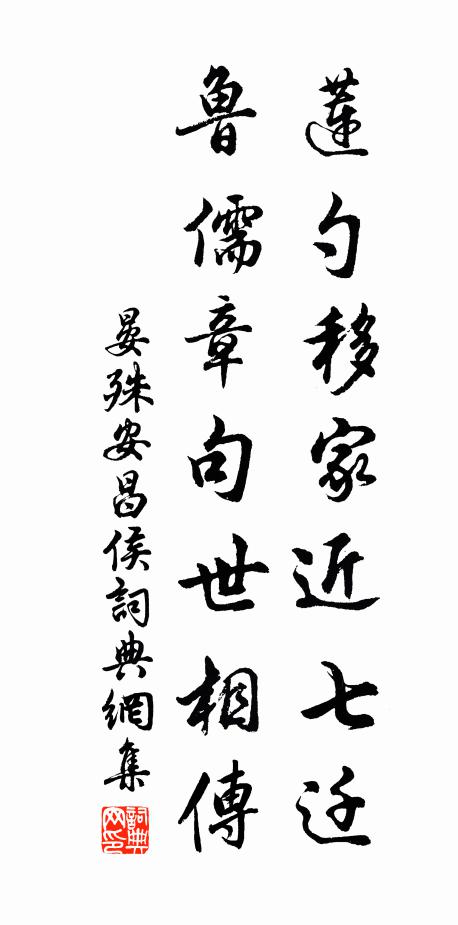 蓮勺移家近七迁
魯儒章句世相傳
晏殊安昌侯詞典網集
詞典网印